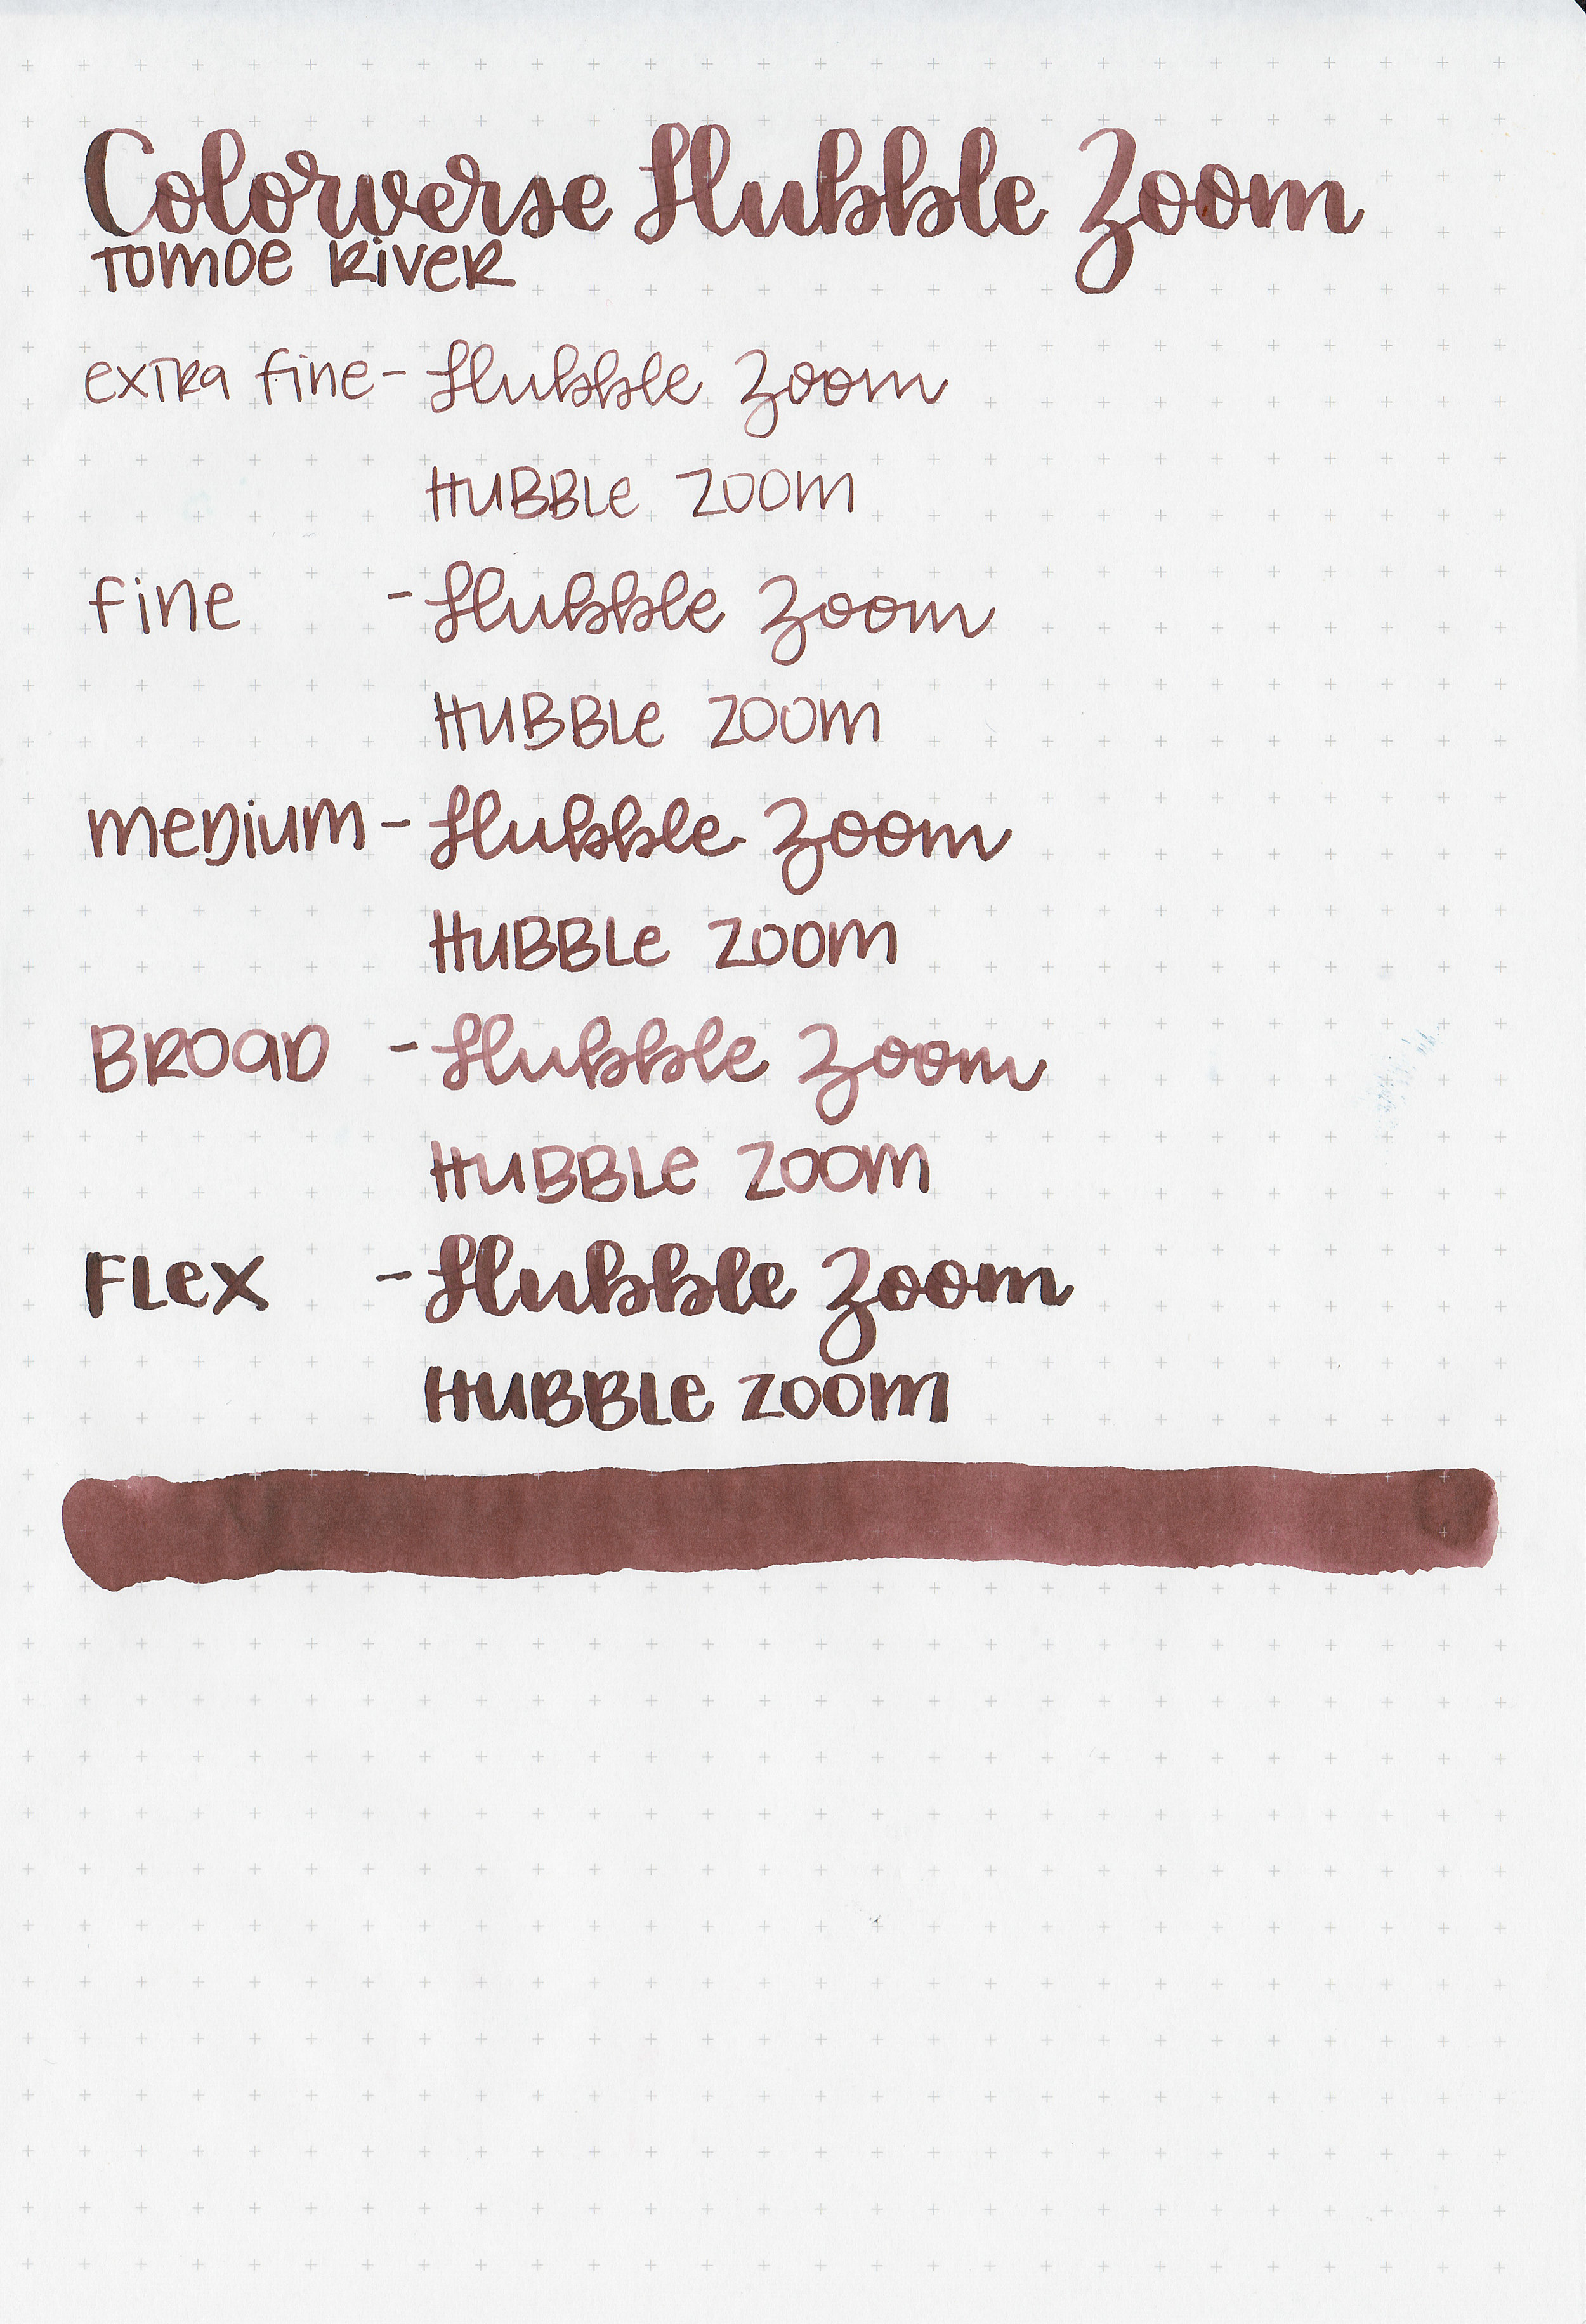 Colorverse Hubble Zoom
TOMOE RIVER
extra fine - Hubble Zoom
HUBBLe ZOOM
fine - Hubble Zoom
HUBBLe ZOOM
meDium - Hubble Zoom
HUBBLe ZOOM
BROaD - Hubble Zoom
HUBBLe ZOOM
FLex - Hubble Zoom
HUBBLe ZOOM